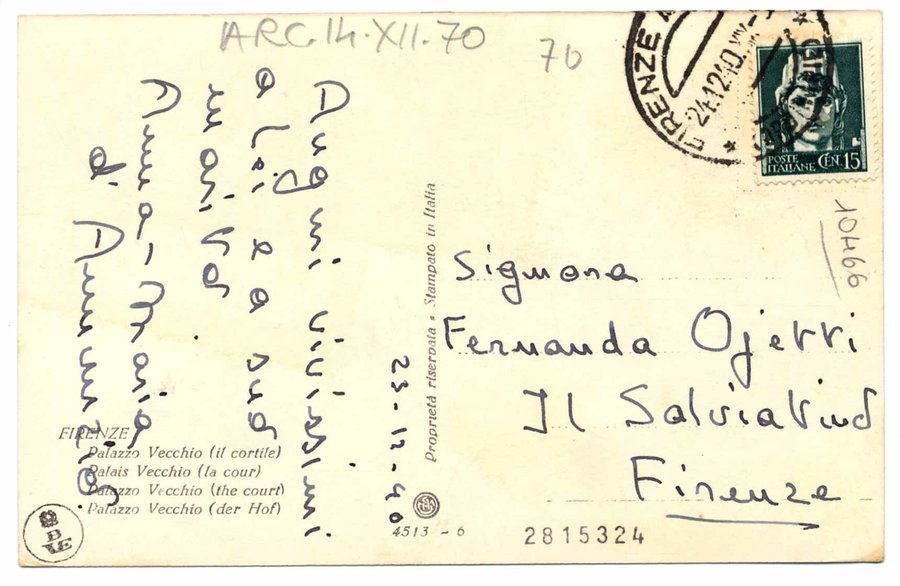 ARC.14.XII.70
70
FIRENZE
24.12.40
POSTE
ITALIANE CEN. 15
10466
Auguri vivissimi
a lei e a suo
marito.
Anna-Maria
d'Annunzio.
23-12-40
FIRENZE
Palazzo Vecchio (il cortile)
Palais Vecchio (la cour)
Palazzo Vecchio (the court)
Palazzo Vecchio (der Hof)
Proprietà riservata - Stampato in Italia
Signora
Fernanda Ojetti
Il Salviatino
Firenze
4513 - 6
2815324